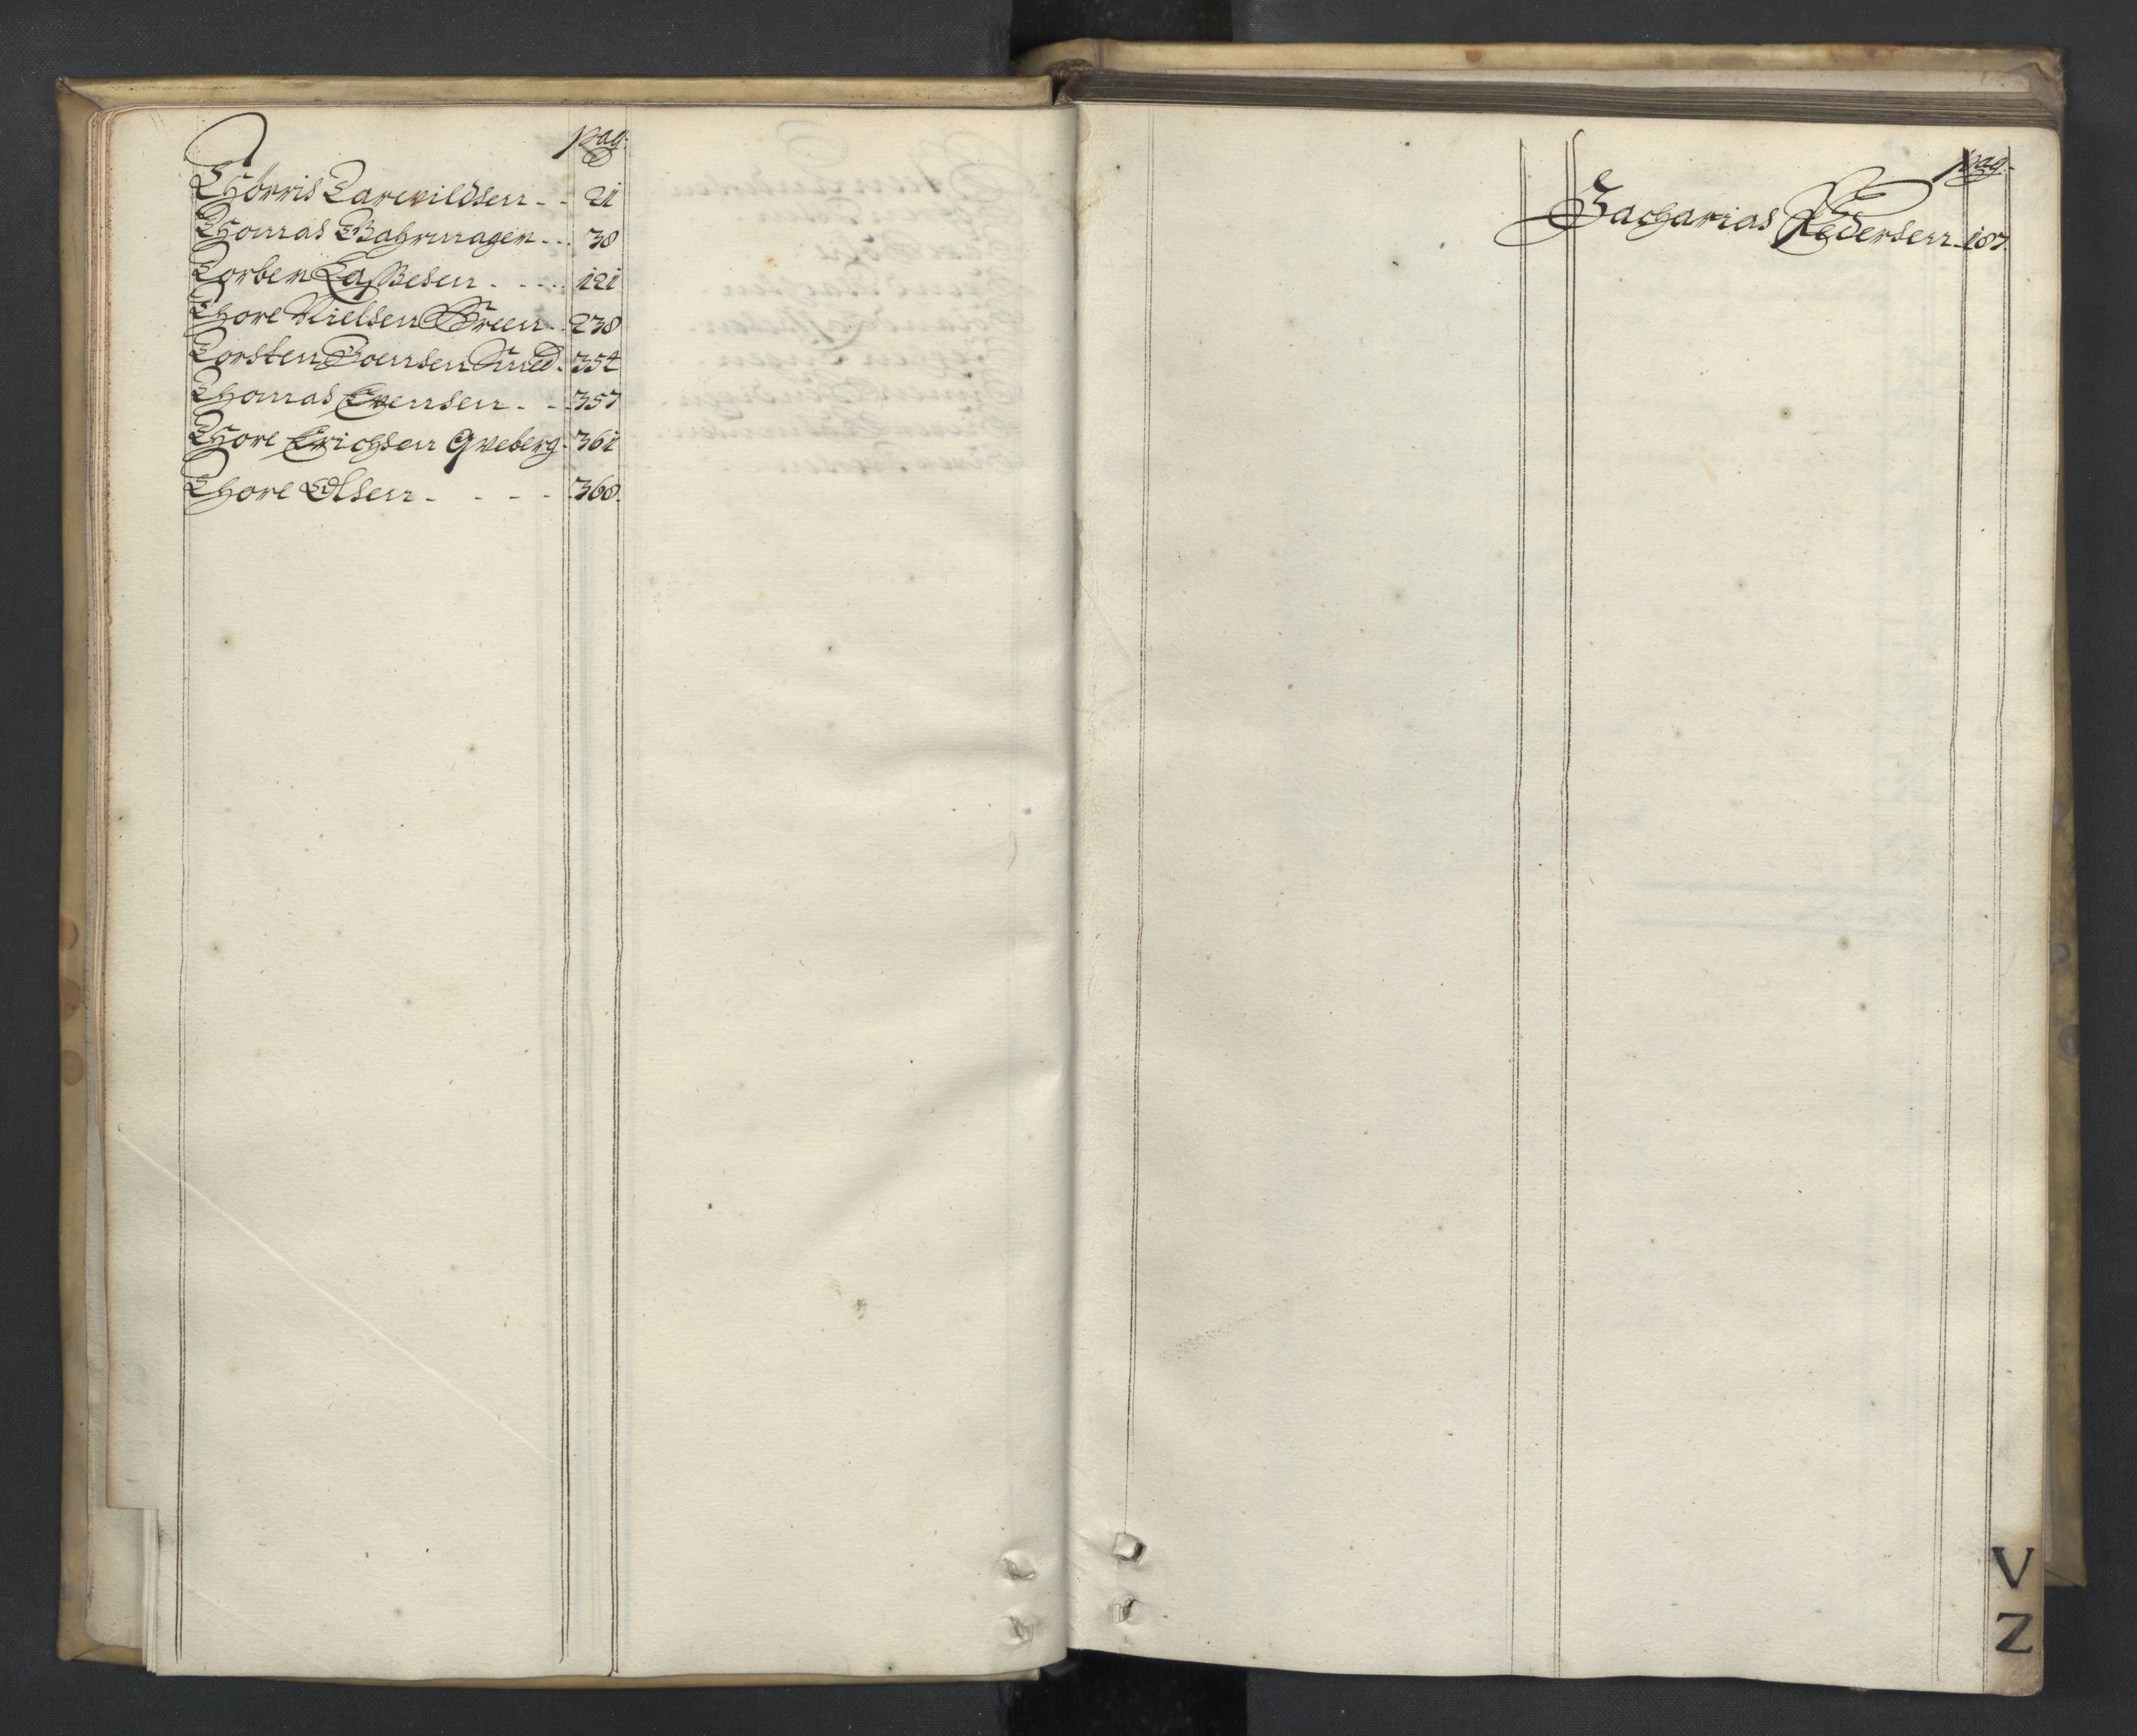 pag:
Thörris Tarevildsen - - 21
Thomas Bahrmager - - - 38
Torben Lassesen - - - - 121
Thore Nielsen Green - - 238
Torsten Joensen Smed - 354
Thomas Evensen - - - 357
Thore Erichsen Gveberg - 361
Thore Olsen - - - - - 368.
pag:
Zacharias Pedersen - 187.
V
Z